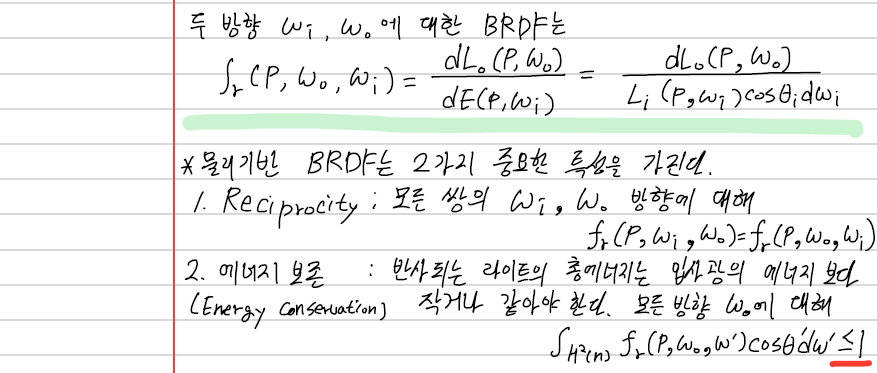 두 방향 ωi, ωo에 대한 BRDF는
fr(P, ωo, ωi) = dLo(P, ωo) / dE(P, ωi) = dLo(P, ωo) / Li(P, ωi)cosθi dωi
*물리기반 BRDF는 2가지 중요한 특성을 가진다.
1. Reciprocity : 모든 쌍의 ωi, ωo 방향에 대해
fr(P, ωi, ωo) = fr(P, ωo, ωi)
2. 에너지 보존 : 반사되는 라이트의 총에너지는 입사광의 에너지 보다
(Energy conservation) 작거나 같아야 한다. 모든 방향 ωo에 대해
∫H²(n) fr(P, ωo, ω')cosθ'dω' ≤ 1